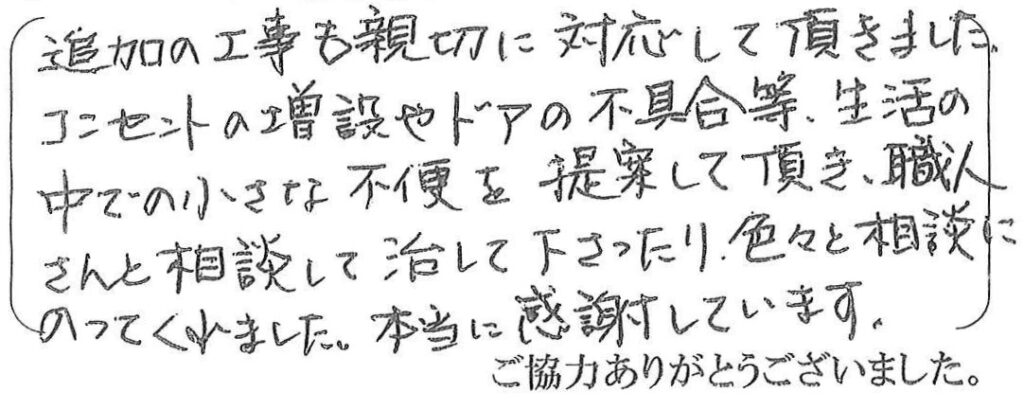 追加の工事も親切に対応して頂きました。
コンセントの増設やドアの不具合等、生活の
中での小さな不便を提案して頂き、職人
さんと相談して治して下さったり、色々と相談に
のってくれました。本当に感謝しています。
ご協力ありがとうございました。